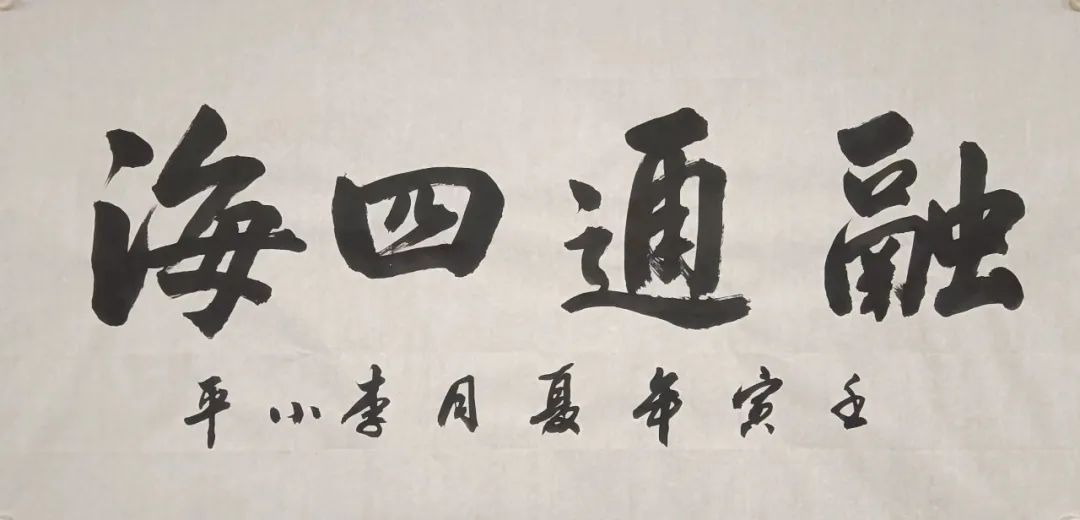 融通四海
壬寅年夏月李小平